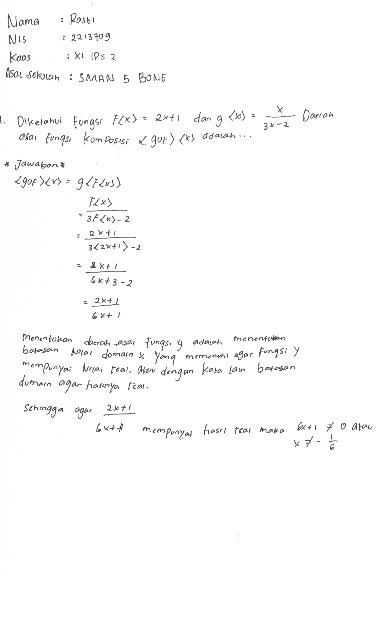 Nama : Rosti
NIS : 2213709
Kaas : XI IPS 2
Asal sekolah : SMAN 5 BONE
1. Diketahui Fungsi F(x) = 2x+1 dan g(x) = x/(3x-2) Daerah
asal fungsi komposisi <goF>(x) adalah...
* Jawaban *
<goF>(x) = g(F(x))
= F(x)/(3F(x)-2)
= (2x+1)/(3(2x+1)-2)
= (2x+1)/(6x+3-2)
= (2x+1)/(6x+1)
Menentukan daerah asal fungsi y adalah menentukan
batasan Nilai domain x yang memenuhi agar fungsi y
mempunyai Nilai real. Atau dengan kata lain batasan
dumain agar hasilnya real.
Sehingga agar (2x+1)/(6x+1) mempunyai hasil real maka 6x+1 ≠ 0 atau
x ≠ - 1/6